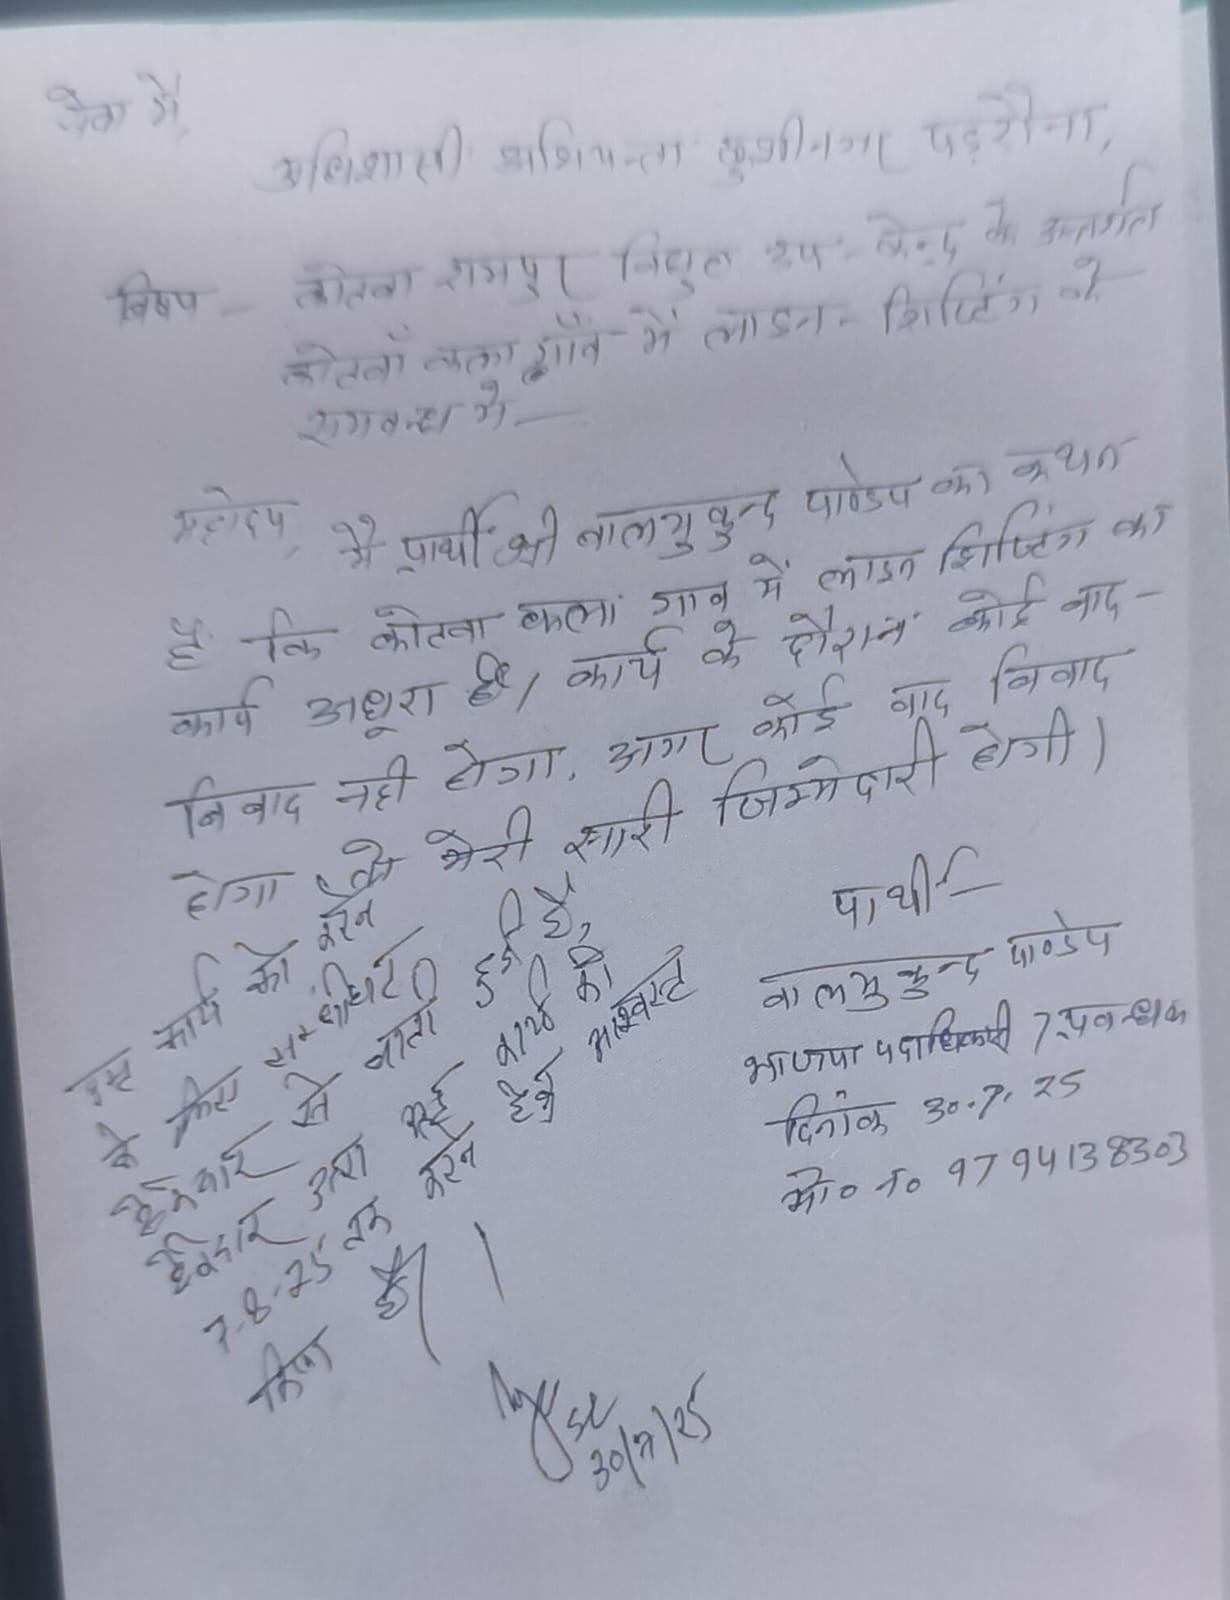 सेवा में,
अधिशासी अभियन्ता कुशीनगर पडरौना,
विषय - कोतवा रामपुर विद्युत उप-केन्द्र के अन्तर्गत
कोतवाँ कला गाँव में लाइन-शिफ्टिंग के
सम्बन्ध में -
महोदय,
मै प्रार्थी श्री बालमुकुन्द पाण्डेय का कथन
है कि कोतवा कला गाव में लाइन शिफ्टिंग का
कार्य अधूरा है, कार्य के दौरान कोई वाद-
विवाद नही होगा, अगर कोई वाद विवाद
होगा तो मेरी सारी जिम्मेदारी होगी।
प्रार्थी -
बालमुकुन्द पाण्डेय
भाजपा पदाधिकारी / प्रबन्धक
दिनांक 30.7.25
मो० न० 9794138303
कार्य को करने
के लिए सम्बंधित
ठेकेदार से वार्ता हुई है,
ठेकेदार द्वारा कार्य को
7.8.25 तक करने हेतु आश्वस्त
किया है।
30/7/25